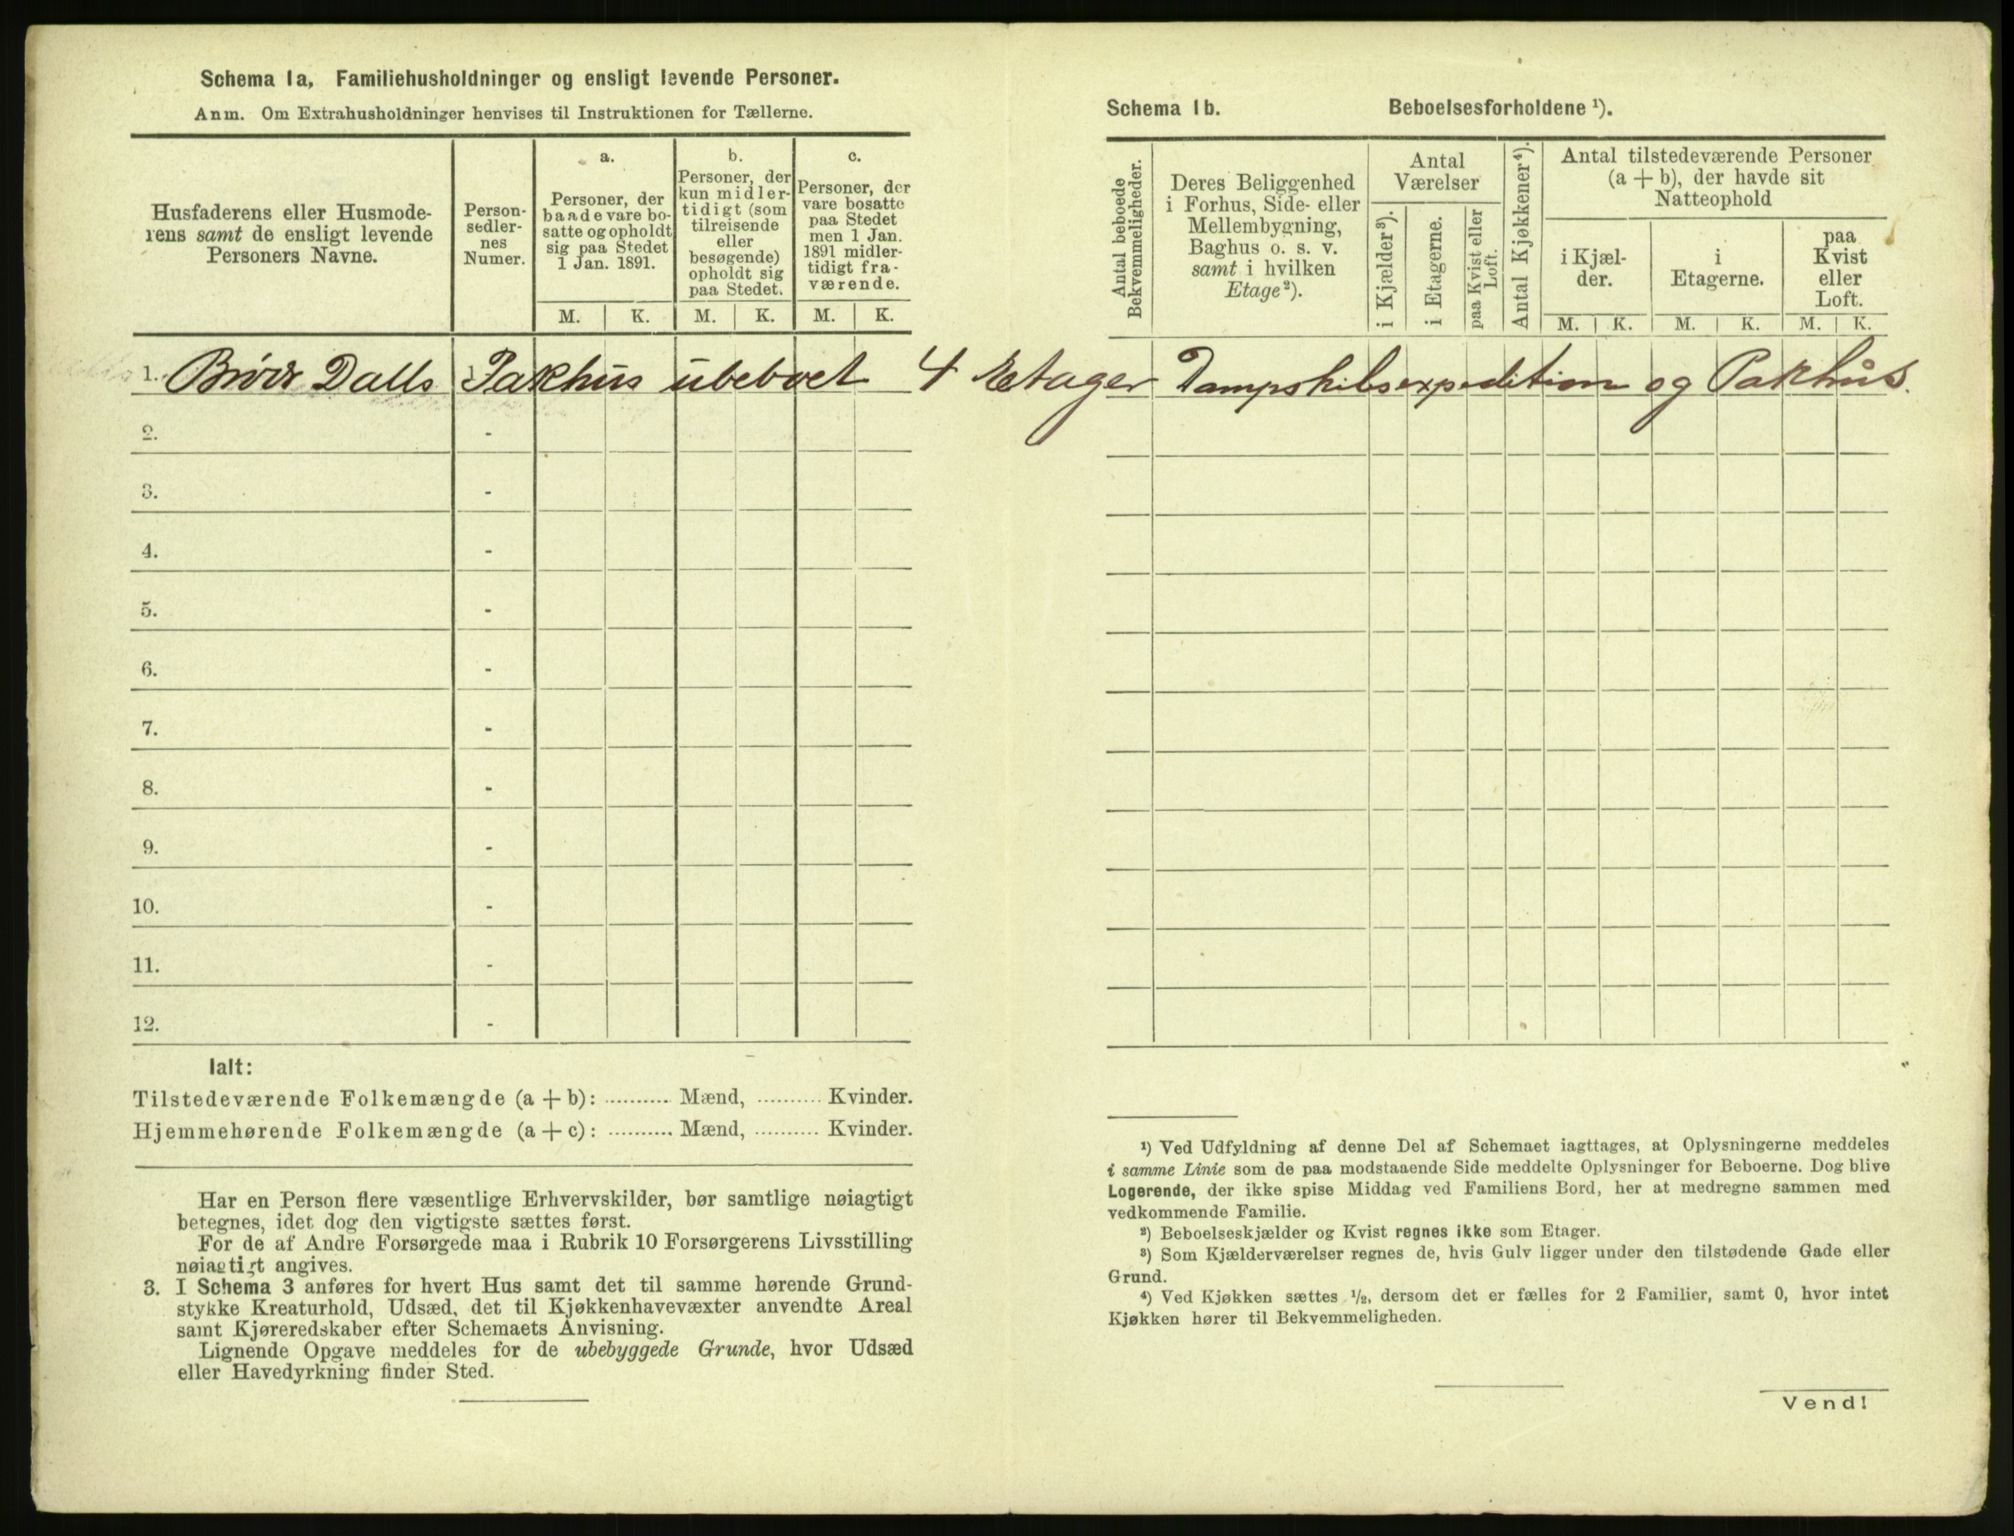 Schema 1a, Familiehusholdninger og ensligt levende Personer.
Anm. Om Extrahusholdninger henvises til Instruktionen for Tællerne.
Husfaderens eller Husmode-
rens samt de ensligt levende
Personers Navne.
Person-
sedler-
nes
Numer.
a.
Personer, der
baade vare bo-
satte og opholdt
sig paa Stedet
1 Jan. 1891.
b.
Personer, der
kun midler-
tidigt (som
tilreisende
eller
besøgende)
opholdt sig
paa Stedet.
c.
Personer, der
vare bosatte
paa Stedet
men 1 Jan.
1891 midler-
tidigt fra-
værende.
M. K. M. K. M. K.
1. Brødr Dalls Pakhus ubeboet 4 Etager Dampskibsexpedition og Pakhus.
2. -
3. -
4. -
5. -
6. -
7. -
8. -
9. -
10. -
11. -
12. -
Ialt:
Tilstedeværende Folkemængde (a + b): .......... Mænd, .......... Kvinder.
Hjemmehørende Folkemængde (a + c): .......... Mænd, .......... Kvinder.
Har en Person flere væsentlige Erhvervskilder, bør samtlige nøiagtigt
betegnes, idet dog den vigtigste sættes først.
For de af Andre Forsørgede maa i Rubrik 10 Forsørgerens Livsstilling
nøiagtigt angives.
3. I Schema 3 anføres for hvert Hus samt det til samme hørende Grund-
stykke Kreaturhold, Udsæd, det til Kjøkkenhavevæxter anvendte Areal
samt Kjøreredskaber efter Schemaets Anvisning.
Lignende Opgave meddeles for de ubebyggede Grunde, hvor Udsæd
eller Havedyrkning finder Sted.
Schema 1b. Beboelsesforholdene ¹).
Antal beboede
Bekvemmeligheder.
Deres Beliggenhed
i Forhus, Side- eller
Mellembygning,
Baghus o. s. v.
samt i hvilken
Etage²).
Antal
Værelser
i Kjælder³).
i Etagerne.
paa Kvist eller
Loft.
Antal Kjøkkener⁴).
Antal tilstedeværende Personer
(a + b), der havde sit
Natteophold
i Kjæl-
der.
i
Etagerne.
paa
Kvist
eller
Loft.
M. K. M. K. M. K.
¹) Ved Udfyldning af denne Del af Schemaet iagttages, at Oplysningerne meddeles
i samme Linie som de paa modstaaende Side meddelte Oplysninger for Beboerne. Dog blive
Logerende, der ikke spise Middag ved Familiens Bord, her at medregne sammen med
vedkommende Familie.
²) Beboelseskjælder og Kvist regnes ikke som Etager.
³) Som Kjælderværelser regnes de, hvis Gulv ligger under den tilstødende Gade eller
Grund.
⁴) Ved Kjøkken sættes ½, dersom det er fælles for 2 Familier, samt 0, hvor intet
Kjøkken hører til Bekvemmeligheden.
Vend!